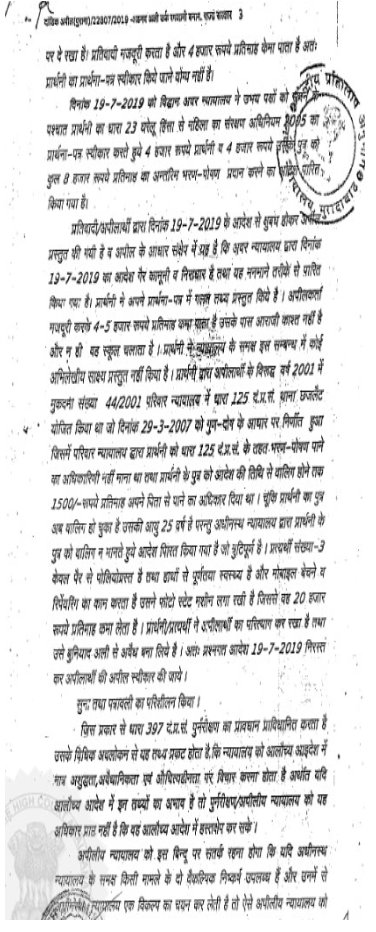 दांडिक अपील(पुरानी)/22807/2019 बनाम राज्य सरकार 3
पर दे रखा है। प्रतिवादी मजदूरी करता है और 4 हजार रूपये प्रतिमाह कमा पाता है अतः
प्रार्थनी का प्रार्थना-पत्र स्वीकार किये जाने योग्य नहीं है।
दिनांक 19-7-2019 को विद्वान अवर न्यायालय ने उभय पक्षों को सुनने के
पश्चात प्रार्थनी का धारा 23 घरेलू हिंसा से महिला का संरक्षण अधिनियम 2005 का
प्रार्थना-पत्र स्वीकार करते हुये 4 हजार रूपये प्रार्थनी व 4 हजार रूपये उसके पुत्र को
कुल 8 हजार रूपये प्रतिमाह का अन्तरिम भरण-पोषण प्रदान करने का पारित
किया गया है।
प्रतिवादी/अपीलार्थी द्वारा दिनांक 19-7-2019 के आदेश से क्षुब्ध होकर अपील
प्रस्तुत की गयी है व अपील के आधार संक्षेप में यह है कि अवर न्यायालय द्वारा दिनांक
19-7-2019 का आदेश गैर कानूनी व निराधार है तथा वह मनमाने तरीके से पारित
किया गया है। प्रार्थनी ने अपने प्रार्थना-पत्र में गलत तथ्य प्रस्तुत किये है। अपीलकर्ता
मजदूरी करके 4-5 हजार रूपये प्रतिमाह कमा पाता है उसके पास आराजी काश्त नहीं है
और न ही वह स्कूल चलाता है। प्रार्थनी ने न्यायालय के समक्ष इस सम्बन्ध में कोई
अभिलेखीय साक्ष्य प्रस्तुत नहीं किया है। प्रार्थनी द्वारा अपीलार्थी के विरूद्ध वर्ष 2001 में
मुकदमा संख्या 44/2001 परिवार न्यायालय में धारा 125 द.प्र.सं. थाना छजलैट
योजित किया था जो दिनांक 29-3-2007 को गुण-दोष के आधार पर निर्णीत हुआ
जिसमें परिवार न्यायालय द्वारा प्रार्थनी को धारा 125 द.प्र.सं. के तहत भरण-पोषण पाने
का अधिकारिणी नहीं माना था तथा प्रार्थनी के पुत्र को आदेश की तिथि से बालिग होने तक
1500/-रूपये प्रतिमाह अपने पिता से पाने का अधिकार दिया था। चूंकि प्रार्थनी का पुत्र
अब बालिग हो चुका है उसकी आयु 25 वर्ष है परन्तु अधीनस्थ न्यायालय द्वारा प्रार्थनी के
पुत्र को बालिग न मानते हुये आदेश पारित किया गया है जो त्रुटिपूर्ण है। प्रत्यर्थी संख्या-3
केवल पैर से पोलियोग्रस्त है तथा हाथों से पूर्णतया स्वस्थ्य है और मोबाइल बेचने व
रिपेयरिंग का काम करता है उसने फोटो स्टेट मशीन लगा रखी है जिससे वह 20 हजार
रूपये प्रतिमाह कमा लेता है। प्रार्थनी/प्रत्यर्थी ने अपीलार्थी का परित्याग कर रखा है तथा
उसे बुनियाद अली से अवैध बना लिये है। अतः प्रश्नगत आदेश 19-7-2019 निरस्त
कर अपीलार्थी की अपील स्वीकार की जाये।
सुना तथा पत्रावली का परिशीलन किया।
जिस प्रकार से धारा 397 द.प्र.सं. पुर्नरीक्षण का प्रावधान प्राविधानित करता है
उसके विधिक अवलोकन से यह तथ्य प्रकट होता है,कि न्यायालय को आलोच्य आदेश में
मात्र अशुद्धता,अवैधानिकता एवं औचित्यहीनता पर विचार करना होता है अर्थात यदि
आलोच्य आदेश में इन तथ्यों का अभाव है तो पुर्नरीक्षण/अपीलीय न्यायालय को यह
अधिकार प्राप्त नहीं है कि वह आलोच्य आदेश में हस्तक्षेप कर सके।
अपीलीय न्यायालय को इस बिन्दु पर सतर्क रहना होगा कि यदि अधीनस्थ
न्यायालय के समक्ष किसी मामले के दो वैकल्पिक निष्कर्ष उपलब्ध हैं और उनमें से
न्यायालय एक विकल्प का चयन कर लेती है तो ऐसे अपीलीय न्यायालय को